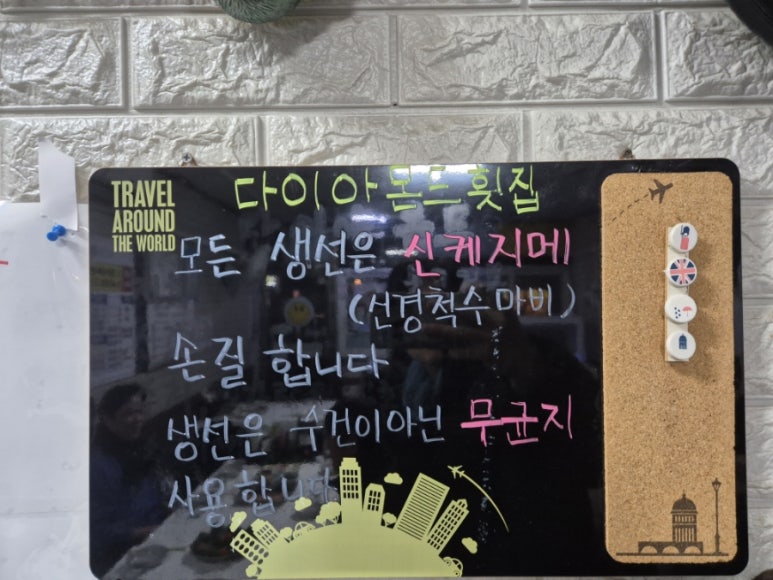 TRAVEL
AROUND
THE WORLD
다이아몬드횟집
모든 생선은 신케지메
(신경척수마비)
손질 합니다
생선은 수건이아닌 무균지
사용합니다